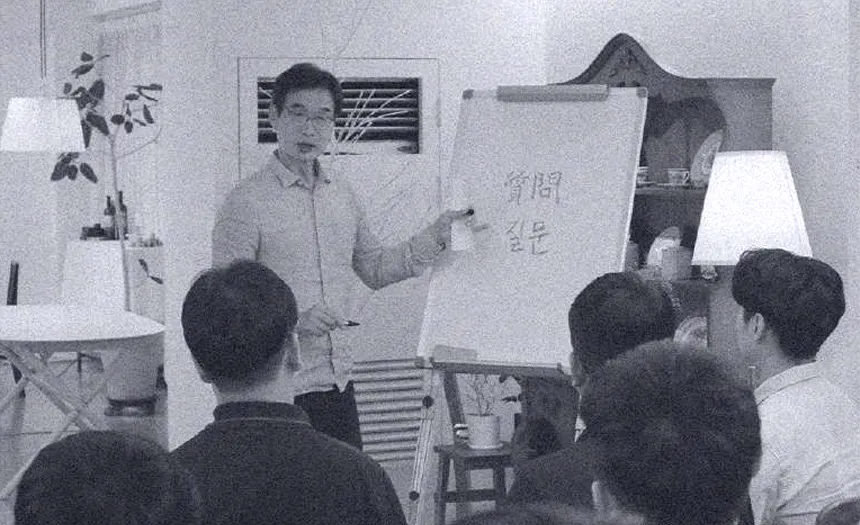 質問
질문